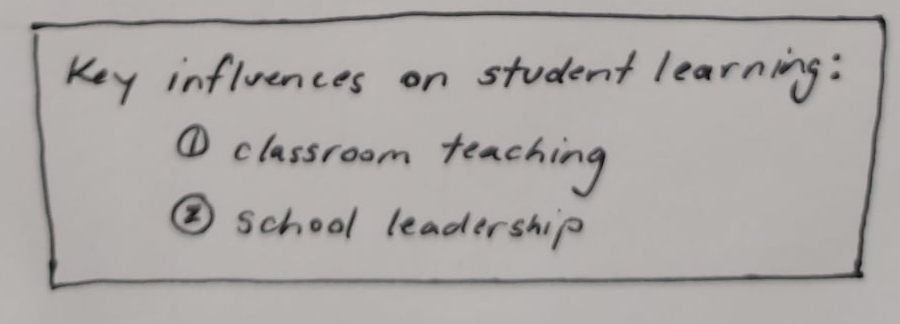 Key influences on student learning:
① classroom teaching
② school leadership